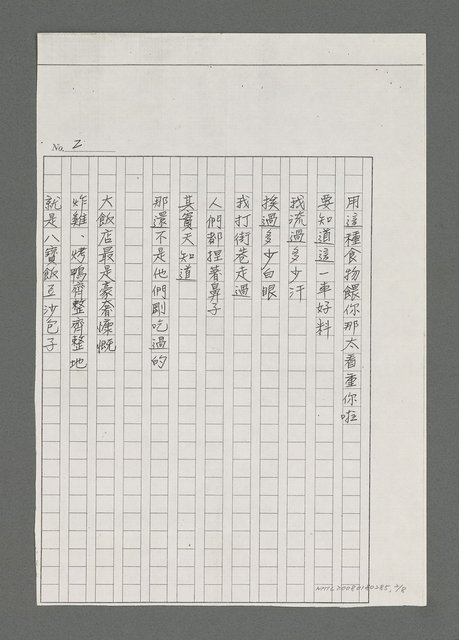 No. 2
用這種食物餵你那太看重你啦
要知道這一車好料
我流過多少汗
挨過多少白眼
我打街巷走過
人們都捏著鼻子
其實天知道
那還不是他們剛吃過的
大飯店最是豪奢慷慨
炸雞、烤鴨齊整齊整地
就是八寶飯豆沙包子